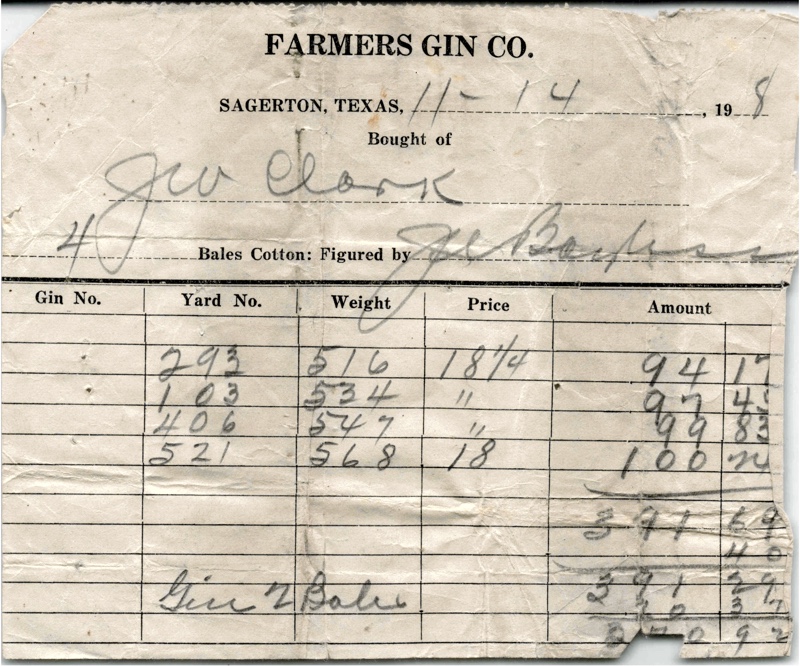 FARMERS GIN CO.
SAGERTON, TEXAS, 11-14, 19 8
Bought of
JW Clark
4 Bales Cotton: Figured by
Gin No. Yard No. Weight Price Amount
293 516 18 1/4 94 17
103 534 " 97 45
406 547 " 99 83
521 568 18 100 24
391 69
40
391 29
Gin 2 Bales 20 37
370 92